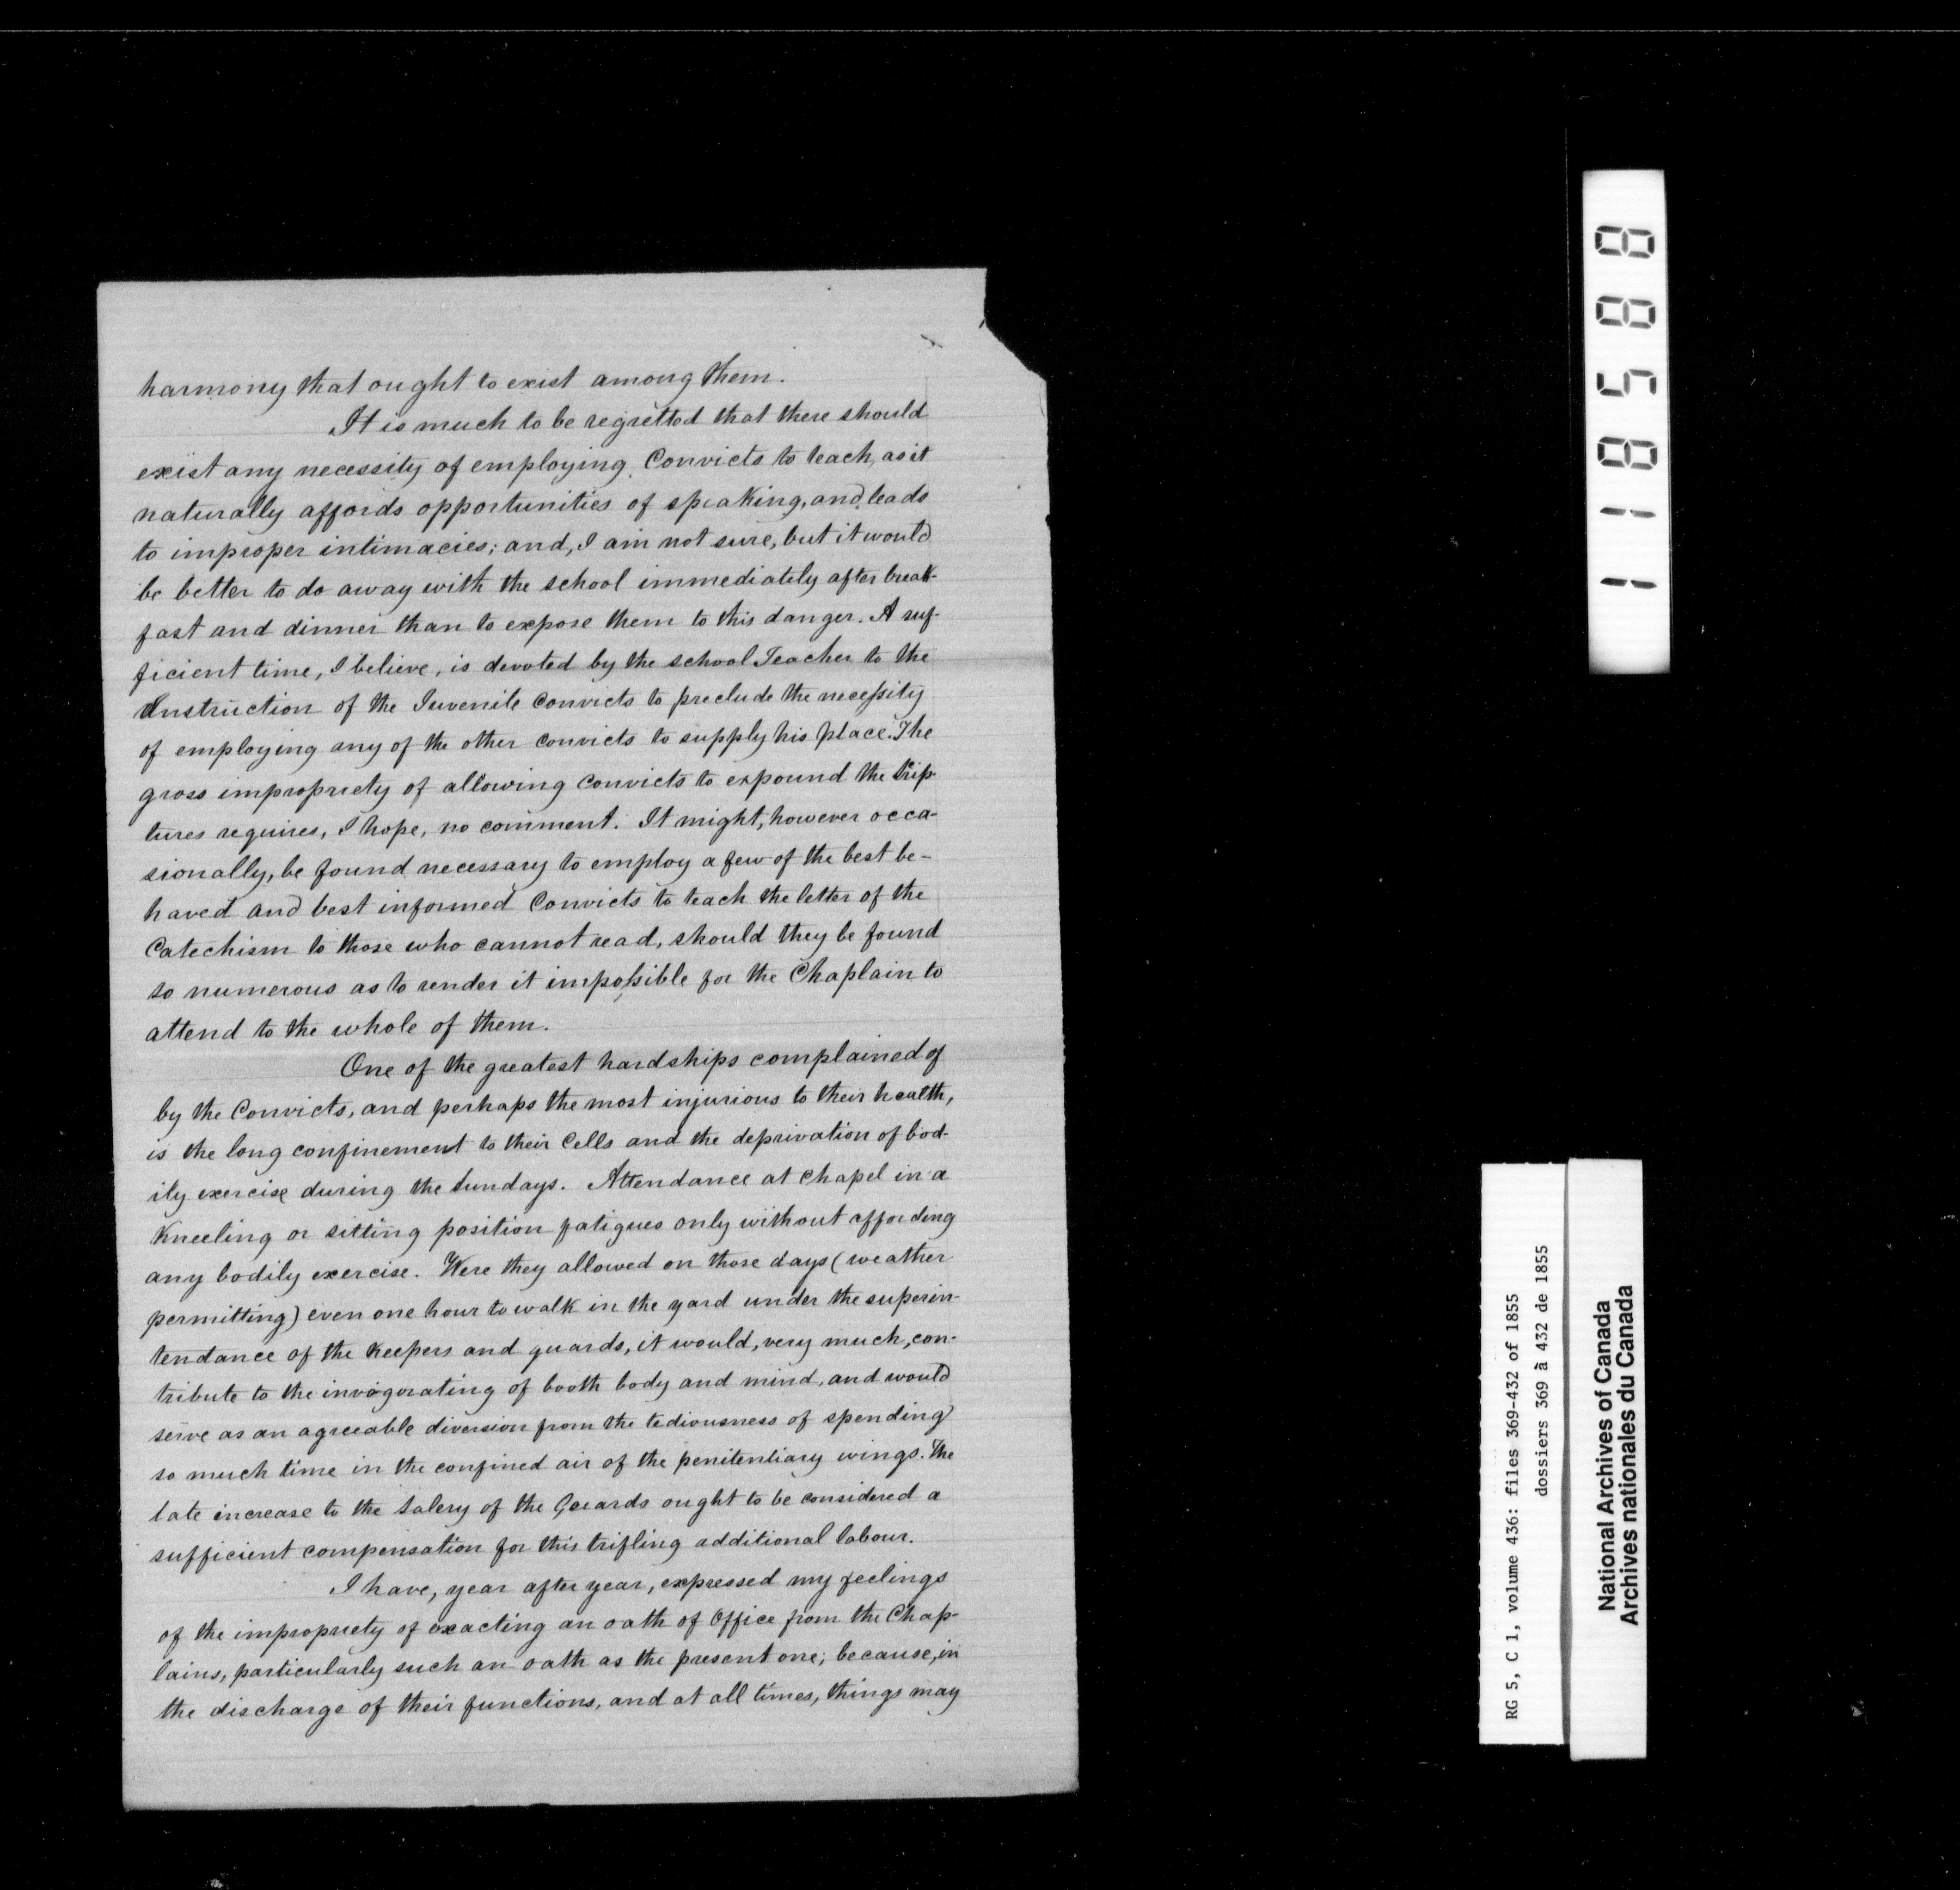 harmony that ought to exist among them.
It is much to be regretted that there should
exist any necessity of employing Convicts to teach, as it
naturally affords opportunities of speaking, and leads
to improper intimacies; and, I am not sure, but it would
be better to do away with the school immediately after break-
fast and dinner than to expose them to this danger. A suf-
ficient time, I believe, is devoted by the school Teacher to the
Instruction of the Juvenile Convicts to preclude the necessity
of employing any of the other convicts to supply his place. The
gross impropriety of allowing convicts to expound the Scrip-
tures requires, I hope, no comment. It might, however occa-
sionally, be found necessary to employ a few of the best be-
haved and best informed Convicts to teach the letter of the
Catechism to those who cannot read, should they be found
so numerous as to render it impossible for the Chaplain to
attend to the whole of them.
One of the greatest hardships complained of
by the Convicts, and perhaps the most injurious to their health,
is the long confinement to their Cells and the deprivation of bod-
ily exercise during the Sundays. Attendance at Chapel in a
Kneeling or sitting position fatigues only without affording
any bodily exercise. Were they allowed on those days (weather
permitting) even one hour to walk in the yard under the superin-
tendance of the Keepers and guards, it would, very much, con-
tribute to the invigorating of booth body and mind, and would
serve as an agreeable diversion from the tediousness of spending
so much time in the confined air of the penitentiary wings. The
late increase to the Salery of the Guards ought to be considered a
sufficient compensation for this trifling additional labour.
I have, year after year, expressed my feelings
of the impropriety of exacting an oath of Office from the Chap-
lains, particularly such an oath as the present one; because, in
the discharge of their functions, and at all times, things may
118588
RG 5, C 1, volume 436: files 369-432 of 1855
dossiers 369 à 432 de 1855
National Archives of Canada
Archives nationales du Canada